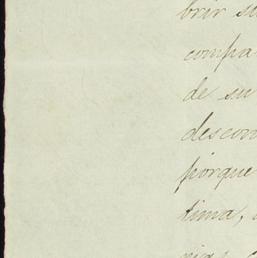 brir su
compa
de su
descon
porque
tima,